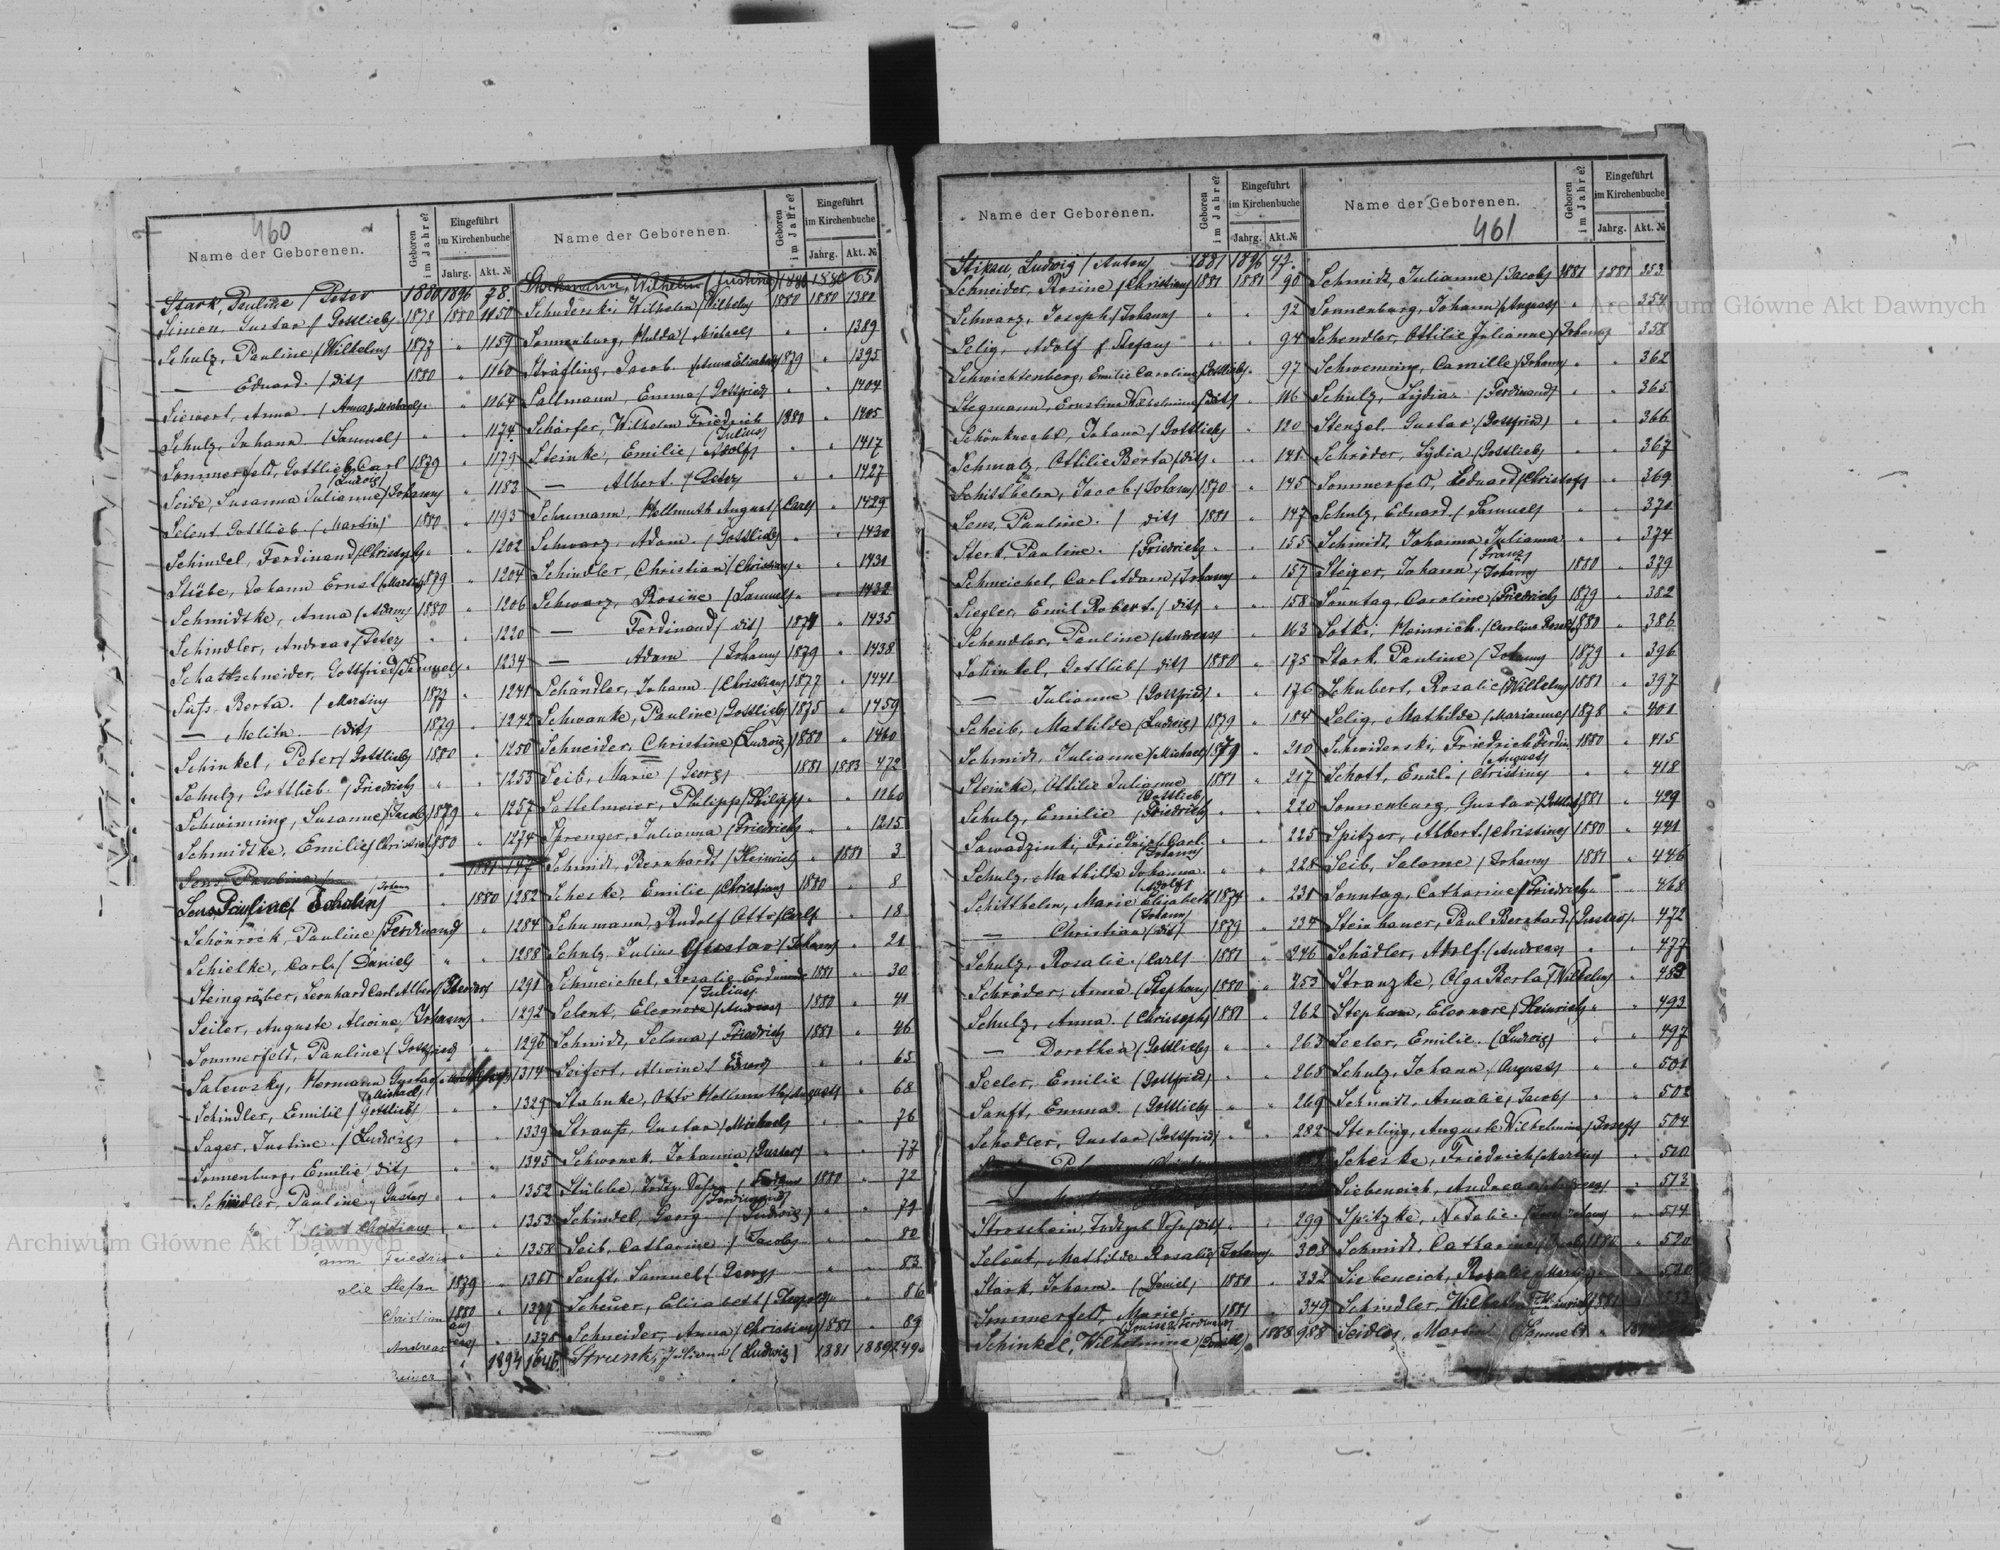 460
Name der Geborenen.
Geboren im Jahre?
Eingeführt im Kirchenbuche
Jahrg. Akt. №
Stark, Pauline / Peter 1880 1896 78.
Simon, Gustav / Gottlieb 1878 1880 1150
Schulz, Pauline / Wilhelm 1877 " 1159
— Eduard / dits 1880 " 1160
Siewert, Anna " 1164
Schulz, Johann / Samuel " " 1174
Sommerfeld, Gottlieb Carl / Ludwig 1879 " 1179
Seide, Susanna Julianne / Johann " 1183
Selent Gottlieb / Martin 1880 " 1193
Schindel, Ferdinand / Christoph " 1202
Stiebe, Johann Ernst / Martin 1879 " 1204
Schmidtke, Anna / Adam 1880 " 1206
Schindler, Andreas / Peter " " 1220
Schatzschneider, Gottfried / Samuel " 1234
Suss Berta / Martin 1877 " 1241
— Melita / dits 1879 " 1242
Schinkel, Peter / Gottlieb 1880 " 1250
Schulz, Gottlieb / Friedrich " " 1253
Schwinning, Susanne / Jacob 1879 " 1257
Schmidtke, Emilie / Christian 1880 " 1274
Sens Pauline 1881 147
Sens Pauline / Johann " 1880 1282
Schönrock, Pauline / Ferdinand " 1284
Schielke, Carl / Daniel " " 1288
Steingräber, Leonhard Carl Albert 1291
Seiler, Auguste Alwine / Johann " 1292
Sommerfeld, Pauline / Gottfried " 1296
Salewsky, Hermann Gustav / Michael 1314
Schindler, Emilie / Gottlieb " " 1329
Sager, Justine / Ludwig " " 1339
Sonnenburg, Emilie / dits " " 1345
Schindler, Pauline / Gustav " " 1352
Christian " " 1353
Friedrich " " 1358
Stefan 1879 " 1361
Christian 1880
Andreas
1894 1646
Name der Geborenen.
Geboren im Jahre?
Eingeführt im Kirchenbuche
Jahrg. Akt. №
Stockmann, Wilhelm / Justine 1880 1880 651
Schuderski Wilhelm / Wilhelm 1880 1880 1380
Sonnenburg, Hulda / Michael " " 1389
Sträfling, Jacob / Anna Elisabeth 1879 " 1395
Saltmann, Emma / Gottfried " " 1404
Schärfer, Wilhelm Friedrich / Julius 1880 " 1405
Steinke, Emilie / Adolf " " 1417
— Albert / Peter " " 1427
Schumann, Hellmuth August / Carl " 1429
Schwarz Adam / Gottlieb " " 1430
Schindler, Christian / Christian " " 1430
Schwarz, Rosine / Samuel " 1432
— Ferdinand / dits " 1435
— Adam / Johann 1879 " 1438
Schändler, Johann / Christian 1877 " 1441
Schwanke, Pauline / Gottlieb 1875 " 1459
Schneider, Christine / Ludwig 1880 " 1460
Seib, Marie / Georg 1881 1883 472
Sattelmeier, Philipp / Philipp " " 1160
Sprenger, Julianna / Friedrich " " 1215
Schmidt, Bernhardt / Heinrich " 1881 3
Scheske, Emilie / Christian 1880 " 8
Schumann, Rudolf Otto / Carl " " 18
Schulz, Julius Gustav / Johann " " 21
Schmeichel, Rosalie / Julius 1881 " 30
Selent, Eleonore / Andreas 1880 " 41
Schmidt, Selma / Friedrich 1881 " 46
Seifert, Alwine / " " 65
Stahnke, Otto Hellmuth / August " " 68
Strauss, Gustav / Michael " " 76
Schwonek, Johanna / Gustav " " 77
Stübbe, Todtg. Sohn / Ferdinand 1880 " 72
Schindel, Georg / Ludwig " " 79
Seib, Catharine / Jacob " " 80
Senft, Samuel / Georg " " 83
Scheuer, Elisabeth / Leopold " " 86
Schneider, Anna / Christian 1881 " 89
Strunk, Juliana / Ludwig 1881 1889
Name der Geborenen.
Geboren im Jahre?
Eingeführt im Kirchenbuche
Jahrg. Akt. №
Stikau, Ludwig / Anton 1881 1896 47.
Schneider, Rosine / Christian 1881 1881 90
Schwarz, Joseph / Johann " " 92
Selig, Adolf / Stefan " " 94
Schwichtenberg, Emilie Caroline / Gottlieb " 97
Stegmann, Ernstine Wilhelmine / dits " 116
Schönknecht, Johann / Gottlieb " 120
Schmalz, Ottilie Berta / dits " " 141
Schitthelm, Jacob / Johann 1870 " 145
Sens, Pauline / dits 1881 " 147
Stert, Pauline / Friedrich " " 155
Schmeichel, Carl Adam / Johann " 157
Siegler, Emil Robert / dits " " 158
Schendler, Pauline / Andreas " " 163
Schinkel, Gottlieb / dits 1880 " 175
— Julianne / Gottfried " " 176
Scheib, Mathilde / Ludwig 1879 " 184
Schmidt, Julianne / Michael 1879 " 210
Steinke, Ottilie Julianne / Gottlieb 1881 " 217
Schulz, Emilie / Friedrich " " 220
Sawadzinki, Friedrich Carl / Johann " " 225
Schulz, Mathilde Johanna / Adolf " " 228
Schitthelm, Marie Elisabeth / Johann 1874 " 231
— Christian / dits 1879 " 234
Schulz, Rosalie / Carl 1881 " 246
Schröder, Anna / Stephan 1880 " 253
Schulz, Anna / Christoph 1881 " 262
— Dorothea / Gottlieb " " 263
Seeler, Emilie / Gottfried " " 268
Sanft, Emma / Gottlieb " " 269
Schedler, Gustav / Gottfried " " 282
Stroschein, Todtgeb. Sohn / dits " " 299
Selent, Mathilde Rosalie / Johann " 308
Stark, Johann / Daniel 1880 " 332
Sommerfeld, Marie 1881 " 349
Schinkel, Wilhelmine 1888 988
461
Name der Geborenen.
Geboren im Jahre?
Eingeführt im Kirchenbuche
Jahrg. Akt. №
Schmidt, Julianne / Jacob 1881 1881 353
Sonnenburg, Johann / August " " 354
Schendler, Ottilie Julianne / Johann " 358
Schwenning, Camille / Johann " " 362
Schulz, Lydia / Ferdinand " " 365
Stenzel, Gustav / Gottfried " " 366
Schröder, Lydia / Gottlieb " " 367
Sommerfeld, Eduard / Christof " " 369
Schulz, Eduard / Samuel " " 371
Schmidt, Johanna Julianna / Franz " " 374
Steiger, Johann / Johann 1880 " 379
Sonntag, Caroline / Friedrich 1879 " 382
Sotki, Heinrich 1880 " 386
Stark, Pauline / Johann 1879 " 396
Schubert, Rosalie / Wilhelm 1881 " 397
Selig, Mathilde / Marianne 1878 " 401
Schwiderski, Friedrich Ferdin / August 1880 " 415
Schott, Emil / Christian " " 418
Sonnenburg, Gustav / Gottlieb 1881 " 429
Spitzer, Albert / Christian 1880 " 441
Seib, Salome / Johann 1881 " 446
Sonntag, Catharine / Friedrich " " 468
Steinhauer, Paul Bernhard / Gustav " " 472
Schädler, Adolf / Andreas " " 477
Stranzke, Olga Berta / Wilhelm " 483
Stephan, Eleonore / Heinrich " " 493
Seeler, Emilie / Ludwig " " 497
Schulz, Johann / August " " 501
Schmidt, Amalie / Jacob " " 502
Sterling, Auguste Wilhelmine / Josef " 504
Scheske, Friedrich / Martin " " 510
Siebeneich, Andreas / Andreas " " 513
Spitzke, Natalie " 514
Schmidt, Catharine 1880 " 520
Siebeneich, Rosalie / Martin
Schindler, Wilhelm / Heinrich 1881
Seidler, Martin / Samuel
Archiwum Główne Akt Dawnych
Archiwum Główne Akt Dawnych